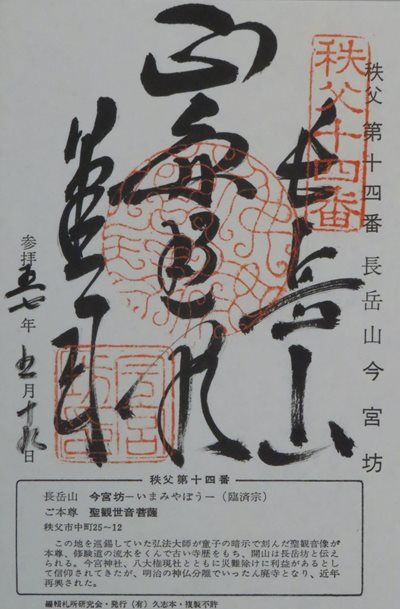 秩父 第十四番 長岳山今宮坊
秩父十四番
長岳山
参拝五七年五月十九日
秩父第十四番
長岳山 今宮坊―いまみやぼう―(臨済宗)
ご本尊 聖観世音菩薩
秩父市中町25～12
この地を巡錫していた弘法大師が童子の暗示で刻んだ聖観音像が
本尊、修験道の流水をくんで古い寺歴をもち、開山は長岳坊と伝え
られる。今宮神社、八大権現社とともに災難除けに利益があるとし
て信仰されてきたが、明治の神仏分離でいったん廃寺となり、近年
再興された。
札所研究会・発行(有)久志本・複製不許